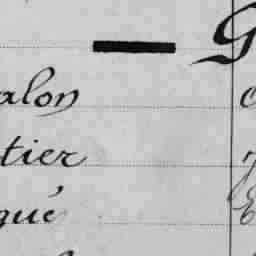 alon
tier
qué